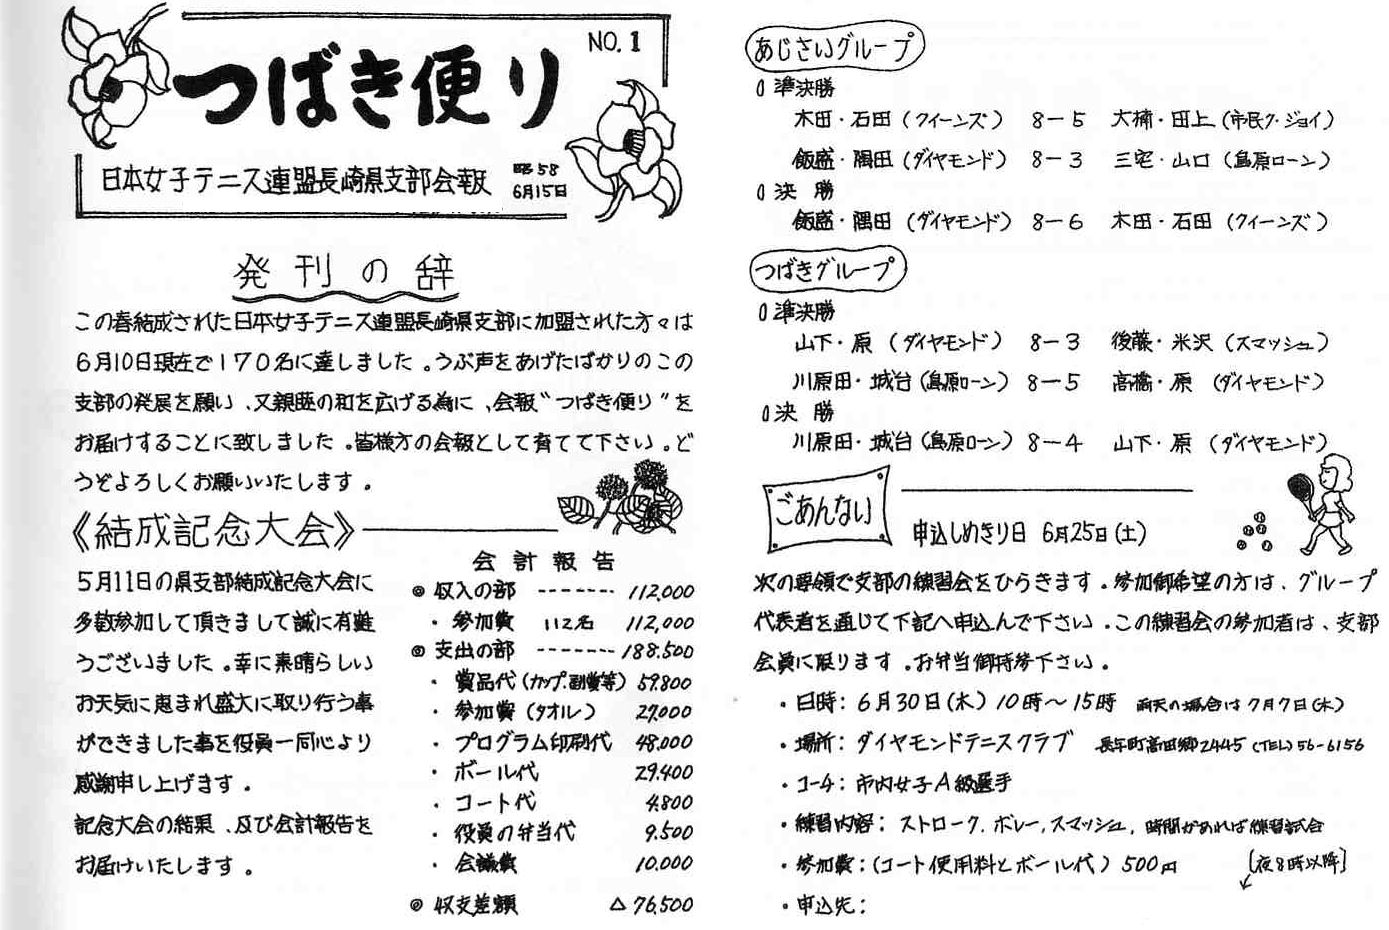 つばき便り
NO.1
日本女子テニス連盟長崎県支部会報
昭58
6月15日
発刊の辞
この春結成された日本女子テニス連盟長崎県支部に加盟された方々は
6月10日現在で170名に達しました。うぶ声をあげたばかりのこの
支部の発展を願い、又親睦の和を広げる為に、会報“つばき便り”を
お届けすることに致しました。皆様方の会報として育てて下さい。ど
うぞよろしくお願いいたします。
《結成記念大会》
5月11日の県支部結成記念大会に
多数参加して頂きまして誠に有難
うございました。幸に素晴らしい
お天気に恵まれ盛大に取り行う事
ができました事を役員一同心より
感謝申し上げます。
記念大会の結果、及び会計報告を
お届けいたします。
会計報告
◎ 収入の部 ------- 112,000
・参加費 112名 112,000
◎ 支出の部 ------- 188.500
・賞品代(カップ.副賞等) 59.800
・参加賞(タオル) 27,000
・プログラム印刷代 48,000
・ボール代 29.400
・コート代 4.800
・役員の弁当代 9.500
・会議費 10.000
◎ 収支差額 △76,500
あじさいグループ
0準決勝
木田・石田(クイーンズ) 8-5 大楠・田上(市民ク・ジョイ)
飯盛・隅田(ダイヤモンド) 8-3 三宅・山口(島原ローン)
0決勝
飯盛・隅田(ダイヤモンド) 8-6 木田・石田(クイーンズ)
つばきグループ
0準決勝
山下・原(ダイヤモンド) 8-3 後藤・米沢(スマッシュ)
川原田・城台(島原ローン) 8-5 高橋・原(ダイヤモンド)
0決勝
川原田・城台(島原ローン) 8-4 山下・原(ダイヤモンド)
ごあんない
申込しめきり日 6月25日(土)
次の要領で支部の練習会をひらきます。参加御希望の方は、グループ
代表者を通じて下記へ申込んで下さい。この練習会の参加者は、支部
会員に限ります。お弁当御持参下さい。
・日時:6月30日(木)10時〜15時 雨天の場合は7月7日(木)
・場所:ダイヤモンドテニスクラブ 長与町高田郷2445(TEL)56-6156
・コーチ:市内女子A級選手
・練習内容:ストローク.ボレー,スマッシュ,時間があれば練習試合
・参加費:(コート使用料とボール代)500円
[夜8時以降]
・申込先: